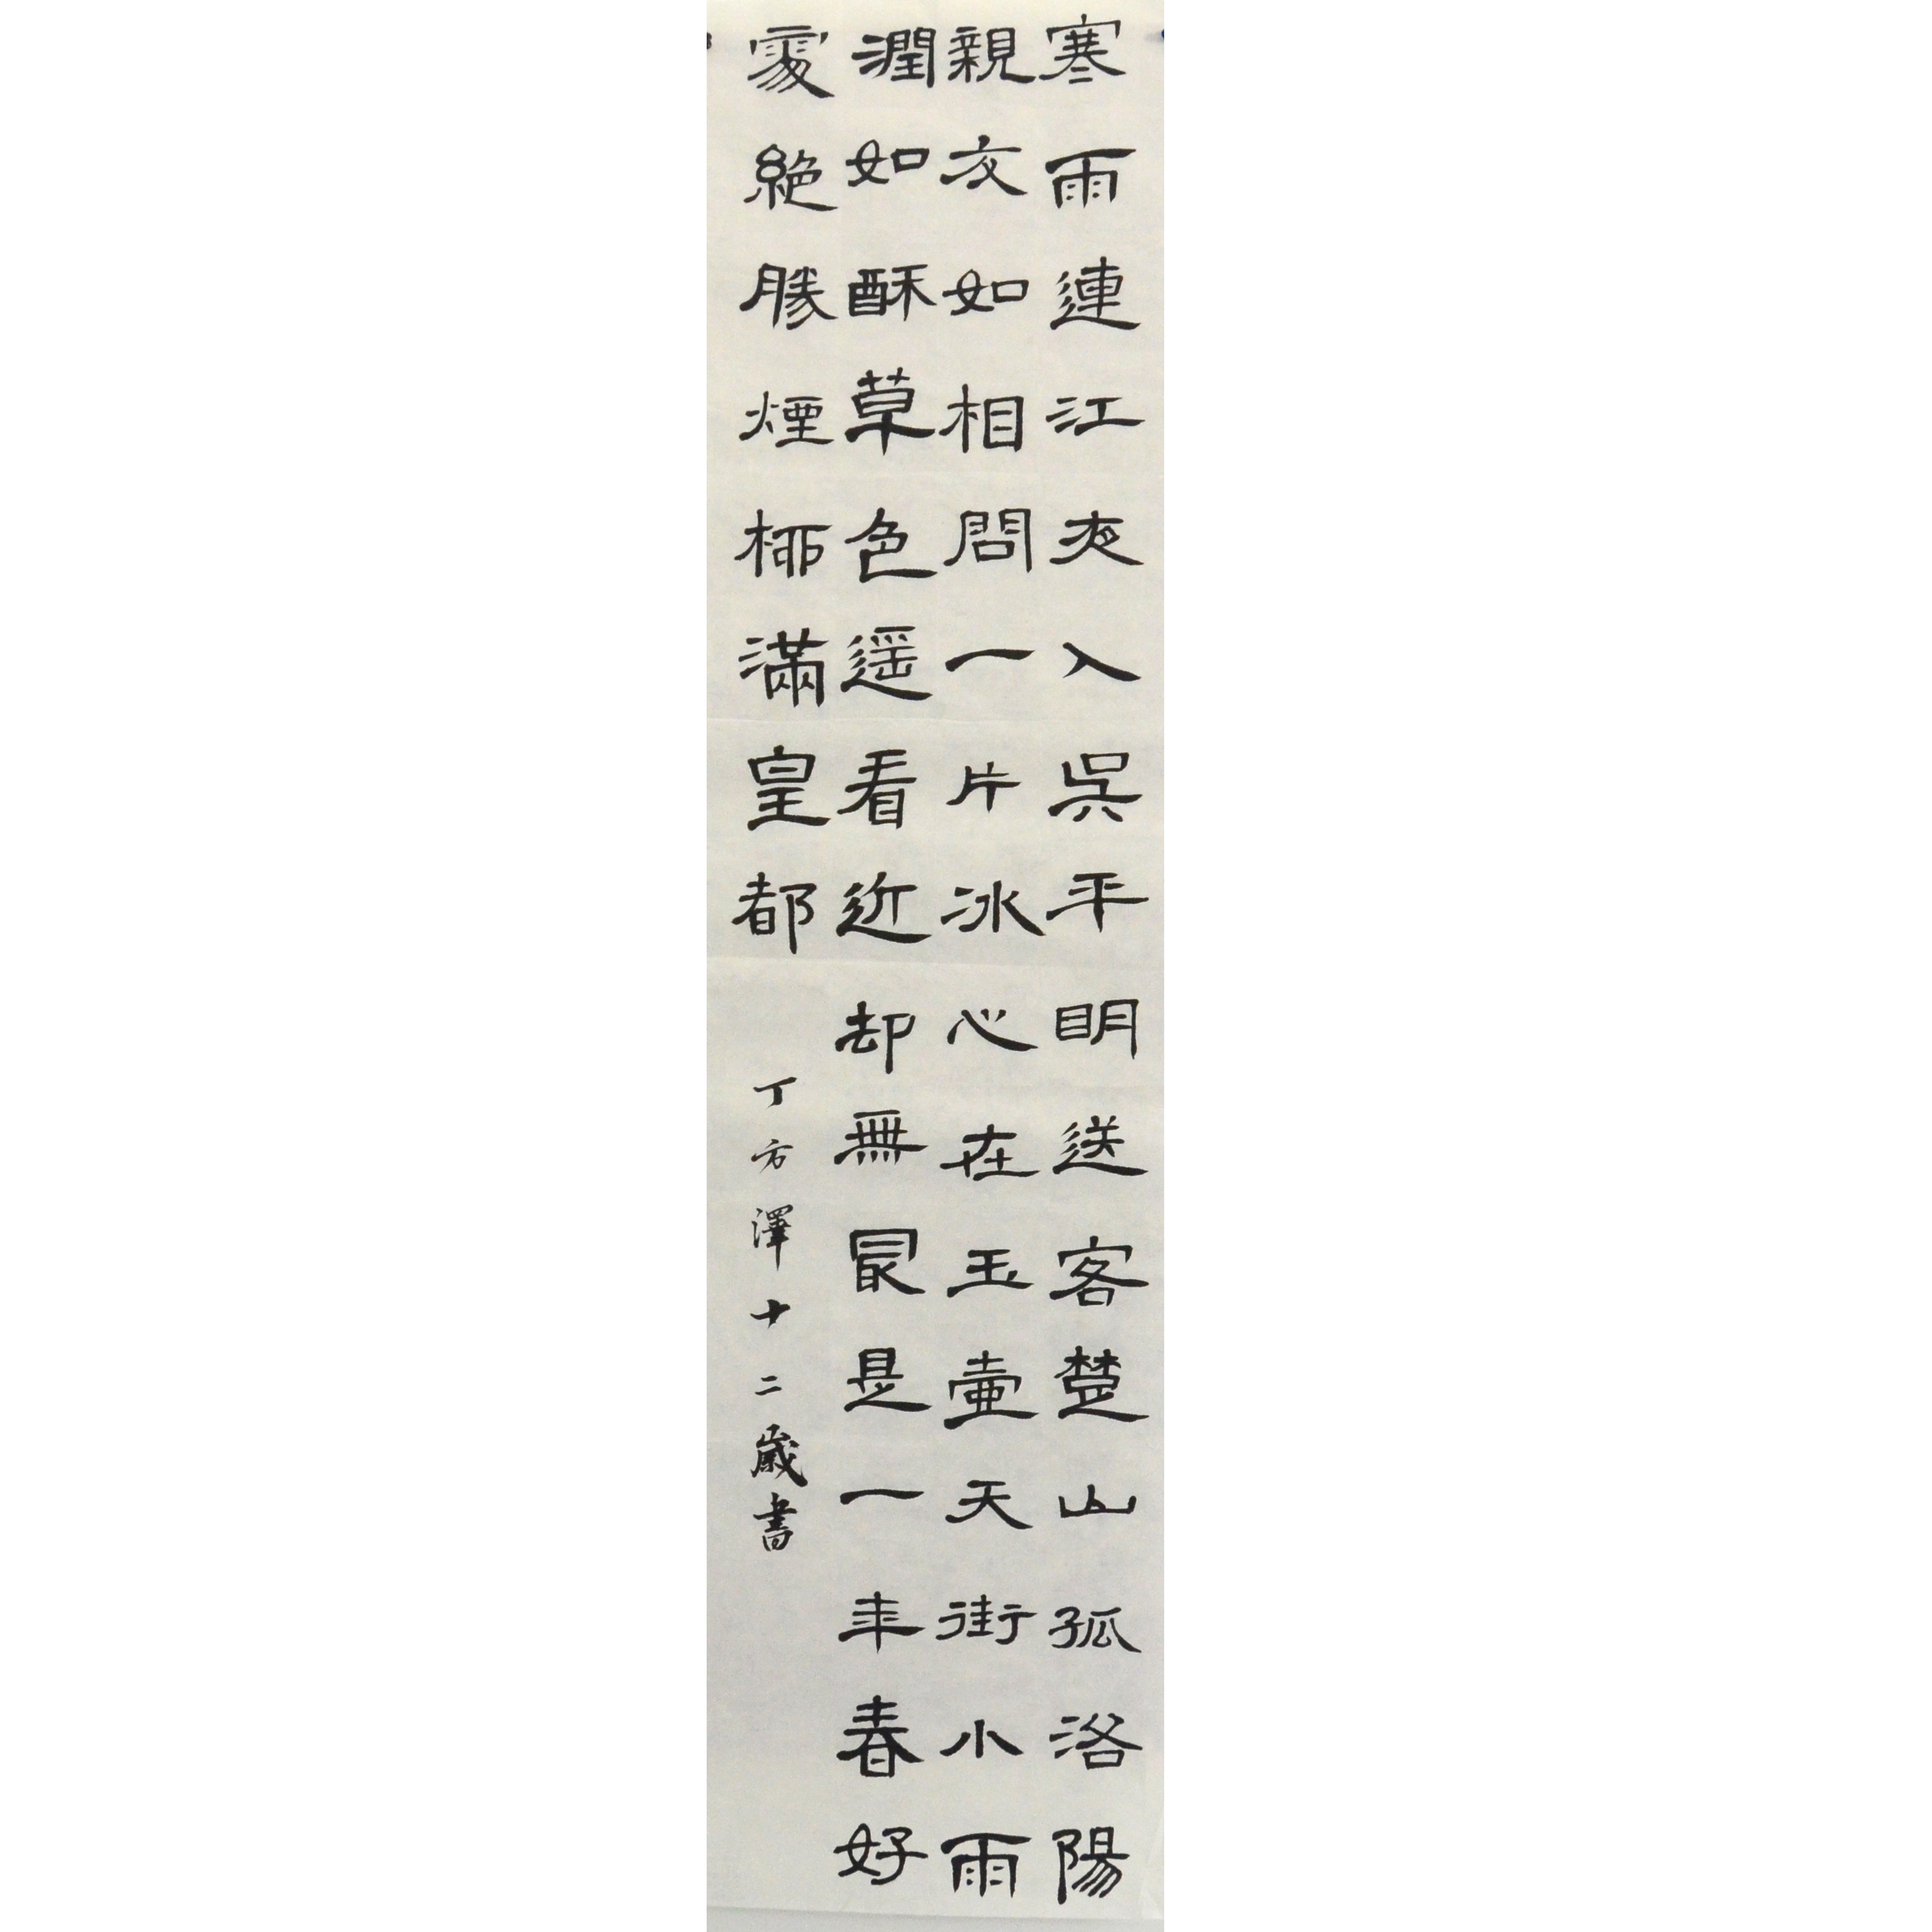 寒雨連江夜入吳平明送客楚山孤洛陽
親友如相問一片冰心在玉壺天街小雨
潤如酥草色遥看近却無最是一年春好
處絕勝煙柳滿皇都
丁方澤十二歲書